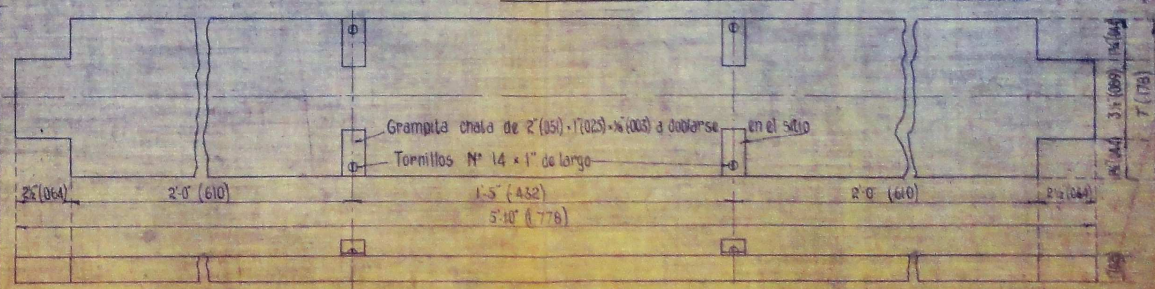 Grampita chata de 2"(051)×1"(025)×⅛"(003) a doblarse en el sitio
Tornillos Nº 14 × 1" de largo
2½"(064)
2'-0" (610)
1'-5" (432)
2'-0" (610)
2½"(064)
5'-10" (1.778)
1¾"(044)
3½"(089)
1¾"(044)
7"(178)